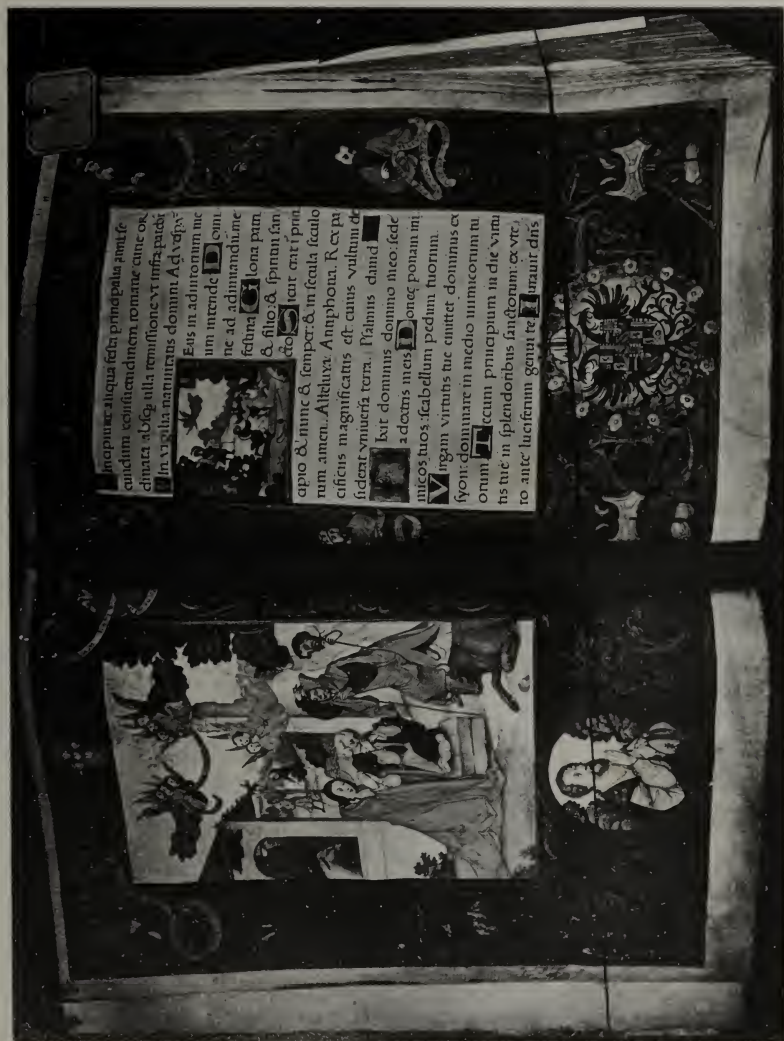 Incipiunt aliqua festa principalia anni se
cundum consuetudinem romane curie or
dinata absq; ulla remissione vt infra patebit
In vigilia natiuitatis domini Ad vesp
Eus in adiutorium me
um intende Domi
ne ad adiuuandum me
festina Gloria patri
& filio: & spiritui san
cto Sicut erat i prin
cipio & nunc & semper: & in secula seculo
rum amen. Alleluya. Antiphona. Rex pa
cificus magnificatus est: cuius vultum de
siderat vniuersa terra. Psalmus dauid
Ixit dominus domino meo: sede
a dextris meis Donec ponam ini
micos tuos: scabellum pedum tuorum.
Virgam virtutis tue emittet dominus ex
syon: dominare in medio inimicorum tu
orum Tecum principium in die virtu
tis tue in splendoribus sanctorum: ex vte
ro ante luciferum genui te Iurauit dns